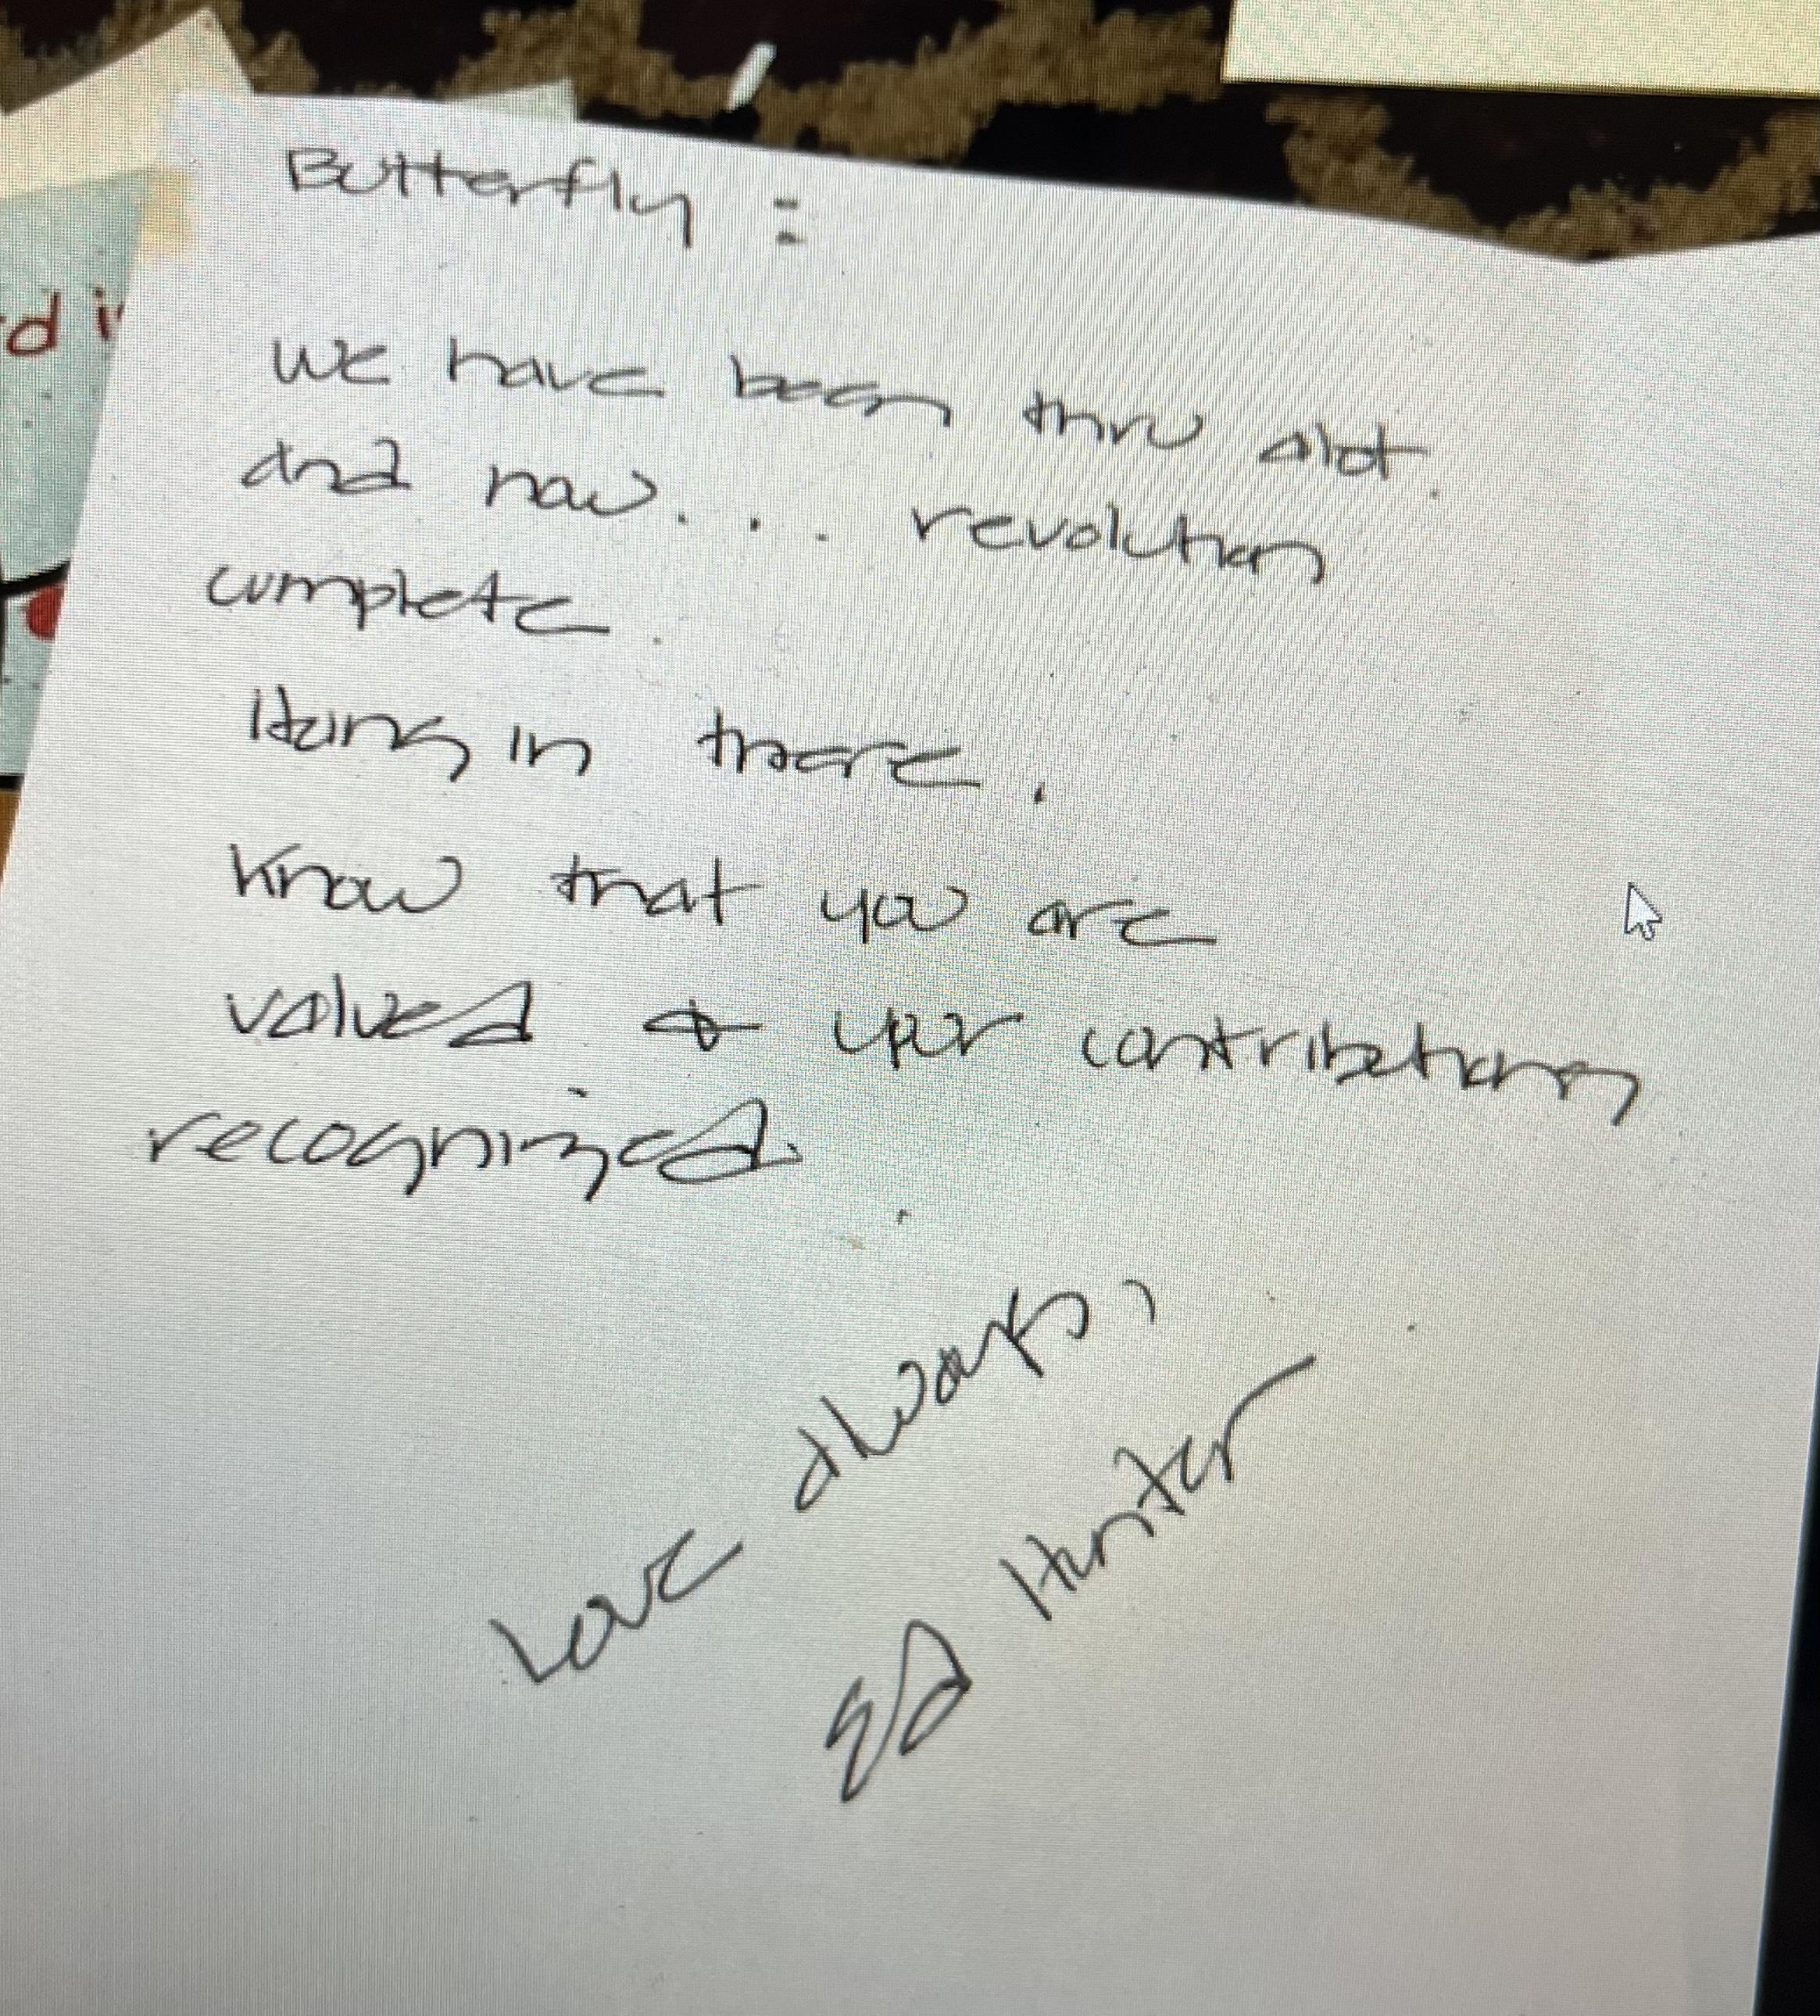 Butterfly :
d i
We have been thru alot.
and now . . . revolution
complete.
Hang in there.
Know that you are
valued & your contributions
recognized.
Love always,
Hunter